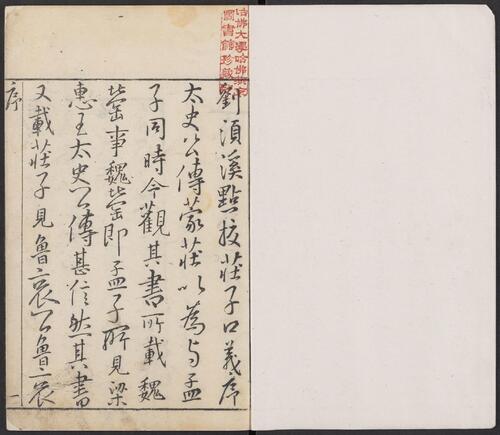 劉須溪點挍莊子口義序
太史公傳蒙莊以為与孟
子同時今觀其書所載魏
罃事魏罃即孟子所見梁
惠王太史公傳甚信然其書
又載莊子見魯哀公魯哀
序
一
哈佛大學哈佛燕京
圖書館珍藏印